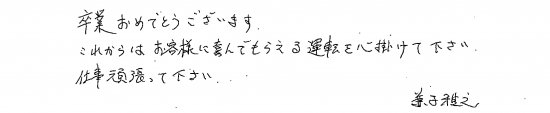 卒業おめでとうございます.
これからはお客様に喜んでもらえる運転を心掛けて下さい.
仕事頑張って下さい...